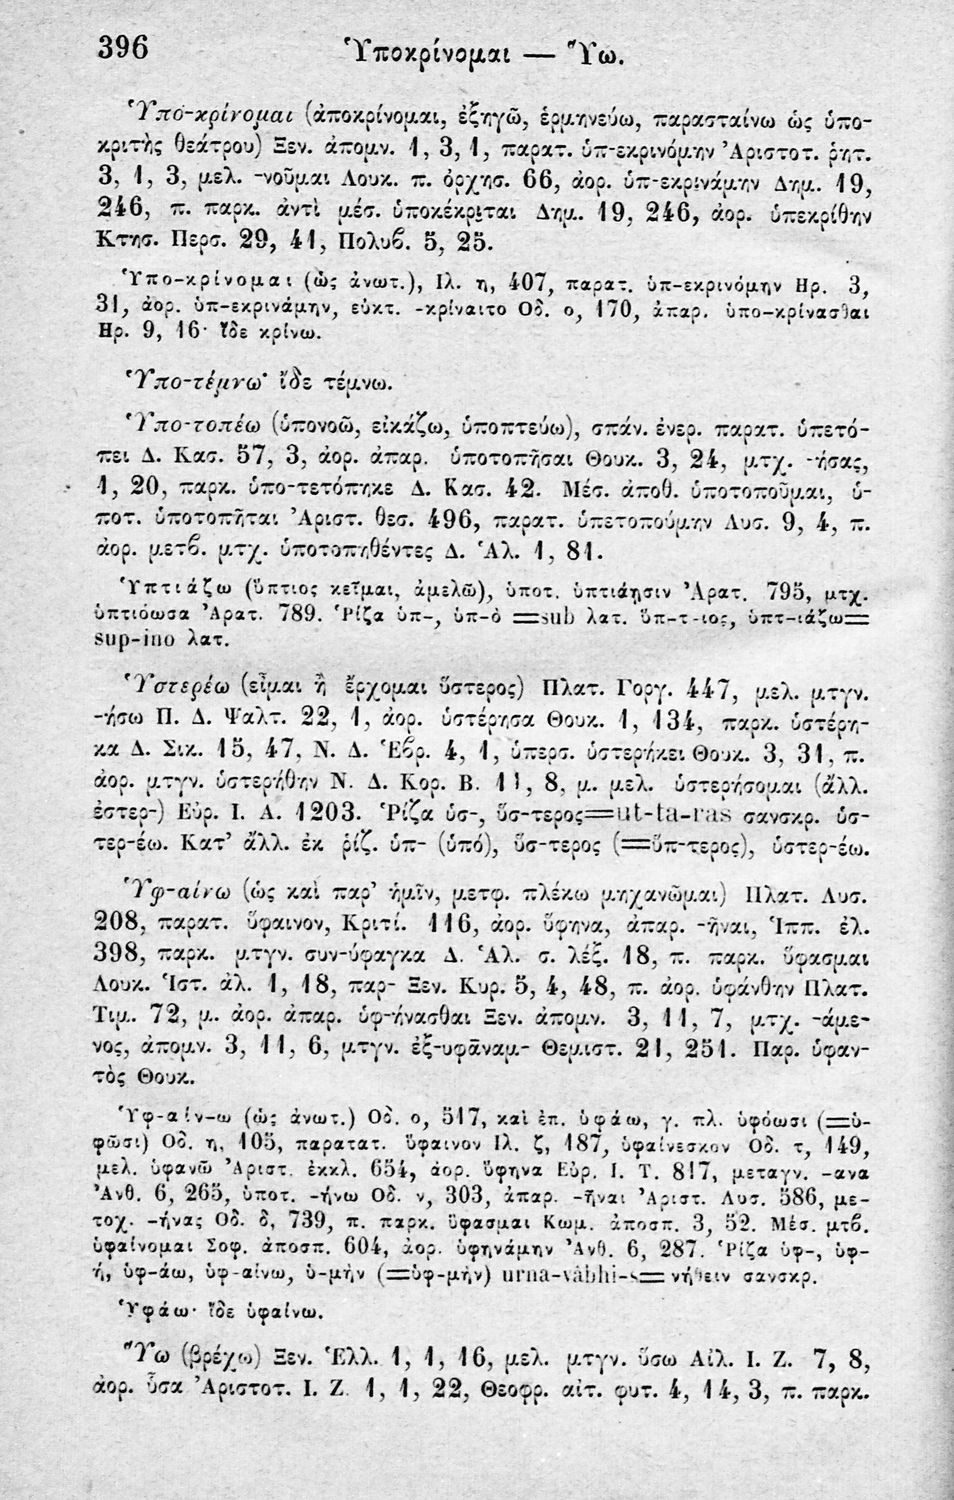 396 Ὑποκρίνομαι — Ὕω.
Ὑπο-κρίνομαι (ἀποκρίνομαι, ἐξηγῶ, ἑρμηνεύω, παρασταίνω ὡς ὑπο-
κριτὴς θεάτρου) Ξεν. ἀπομν. 1, 3, 1, παρατ. ὑπ-εκρινόμην Ἀριστοτ. ῥητ.
3, 1, 3, μελ. -νοῦμαι Λουκ. π. ὀρχησ. 66, ἀορ. ὑπ-εκρινάμην Δημ. 19,
246, π. παρκ. ἀντὶ μέσ. ὑποκέκριται Δημ. 19, 246, ἀορ. ὑπεκρίθην
Κτησ. Περσ. 29, 41, Πολυϐ. 5, 25.
Ὑπο-κρίνομαι (ὡς ἀνωτ.), Ιλ. η, 407, παρατ. ὑπ-εκρινόμην Ηρ. 3,
31, ἀορ. ὑπ-εκρινάμην, εὐκτ. -κρίναιτο Οδ. ο, 170, ἀπαρ. ὑπο-κρίνασθαι
Ηρ. 9, 16· ἴδε κρίνω.
Ὑπο-τέμνω· ἴδε τέμνω.
Ὑπο-τοπέω (ὑπονοῶ, εἰκάζω, ὑποπτεύω), σπάν. ἐνερ. παρατ. ὑπετό-
πει Δ. Κασ. 57, 3, ἀορ. ἀπαρ. ὑποτοπῆσαι Θουκ. 3, 24, μτχ. -ήσας,
1, 20, παρκ. ὑπο-τετόπηκε Δ. Κασ. 42. Μέσ. ἀποθ. ὑποτοποῦμαι, ὑ-
ποτ. ὑποτοπῆται Ἀριστ. θεσ. 496, παρατ. ὑπετοπούμην Λυσ. 9, 4, π.
ἀορ. μετϐ. μτχ. ὑποτοπηθέντες Δ. Ἁλ. 1, 81.
Ὑπτιάζω (ὕπτιος κεῖμαι, ἀμελῶ), ὑποτ. ὑπτιάῃσιν Ἀρατ. 795, μτχ.
ὑπτιόωσα Ἀρατ. 789. Ῥίζα ὑπ-, ὑπ-ὸ =sub λατ. ὕπ-τ-ιος, ὑπτ-ιάζω=
sup-ino λατ.
Ὑστερέω (εἶμαι ἢ ἔρχομαι ὕστερος) Πλατ. Γοργ. 447, μελ. μτγν.
-ήσω Π. Δ. Ψαλτ. 22, 1, ἀορ. ὑστέρησα Θουκ. 1, 134, παρκ. ὑστέρη-
κα Δ. Σικ. 15, 47, Ν. Δ. Ἑϐρ. 4, 1, ὑπερσ. ὑστερήκει Θουκ. 3, 31, π.
ἀορ. μτγν. ὑστερήθην Ν. Δ. Κορ. Β. 11, 8, μ. μελ. ὑστερήσομαι (ἄλλ.
ἐστερ-) Εὐρ. Ι. Α. 1203. Ῥίζα ὑσ-, ὕσ-τερος=ut-ta-ras σανσκρ. ὑσ-
τερ-έω. Κατ' ἄλλ. ἐκ ῥίζ. ὑπ- (ὑπό), ὕσ-τερος (=ὕπ-τερος), ὑστερ-έω.
Ὑφ-αίνω (ὡς καὶ παρ' ἡμῖν, μετφ. πλέκω μηχανῶμαι) Πλατ. Λυσ.
208, παρατ. ὕφαινον, Κριτί. 116, ἀορ. ὕφηνα, ἀπαρ. -ῆναι, Ἱππ. ἐλ.
398, παρκ. μτγν. συν-ύφαγκα Δ. Ἁλ. σ. λέξ. 18, π. παρκ. ὕφασμαι
Λουκ. Ἱστ. ἀλ. 1, 18, παρ- Ξεν. Κυρ. 5, 4, 48, π. ἀορ. ὑφάνθην Πλατ.
Τιμ. 72, μ. ἀορ. ἀπαρ. ὑφ-ήνασθαι Ξεν. ἀπομν. 3, 11, 7, μτχ. -άμε-
νος, ἀπομν. 3, 11, 6, μτγν. ἐξ-υφᾶναμ- Θεμιστ. 21, 251. Παρ. ὑφαν-
τὸς Θουκ.
Ὑφ-αίν-ω (ὡς ἀνωτ.) Οδ. ο, 517, καὶ ἐπ. ὑφάω, γ. πλ. ὑφόωσι (=ὑ-
φῶσι) Οδ. η, 105, παρατατ. ὕφαινον Ιλ. ζ, 187, ὑφαίνεσκον Οδ. τ, 149,
μελ. ὑφανῶ Ἀριστ. ἐκκλ. 654, ἀορ. ὕφηνα Εὐρ. Ι. Τ. 817, μεταγν. -ανα
Ἀνθ. 6, 265, ὑποτ. -ήνω Οδ. ν, 303, ἀπαρ. -ῆναι Ἀριστ. Λυσ. 586, με-
τοχ. -ήνας Οδ. δ, 739, π. παρκ. ὕφασμαι Κωμ. ἀποσπ. 3, 52. Μέσ. μτϐ.
ὑφαίνομαι Σοφ. ἀποσπ. 604, ἀορ. ὑφηνάμην Ἀνθ. 6, 287. Ῥίζα ὑφ-, ὑφ-
ή, ὑφ-άω, ὑφ-αίνω, ὑ-μὴν (=ὑφ-μὴν) urna-vâbhi-s= νήθειν σανσκρ.
Ὑφάω· ἴδε ὑφαίνω.
Ὕω (βρέχω) Ξεν. Ἑλλ. 1, 1, 16, μελ. μτγν. ὕσω Αἰλ. Ι. Ζ. 7, 8,
ἀορ. ὗσα Ἀριστοτ. Ι. Ζ. 1, 1, 22, Θεοφρ. αἰτ. φυτ. 4, 14, 3, π. παρκ.